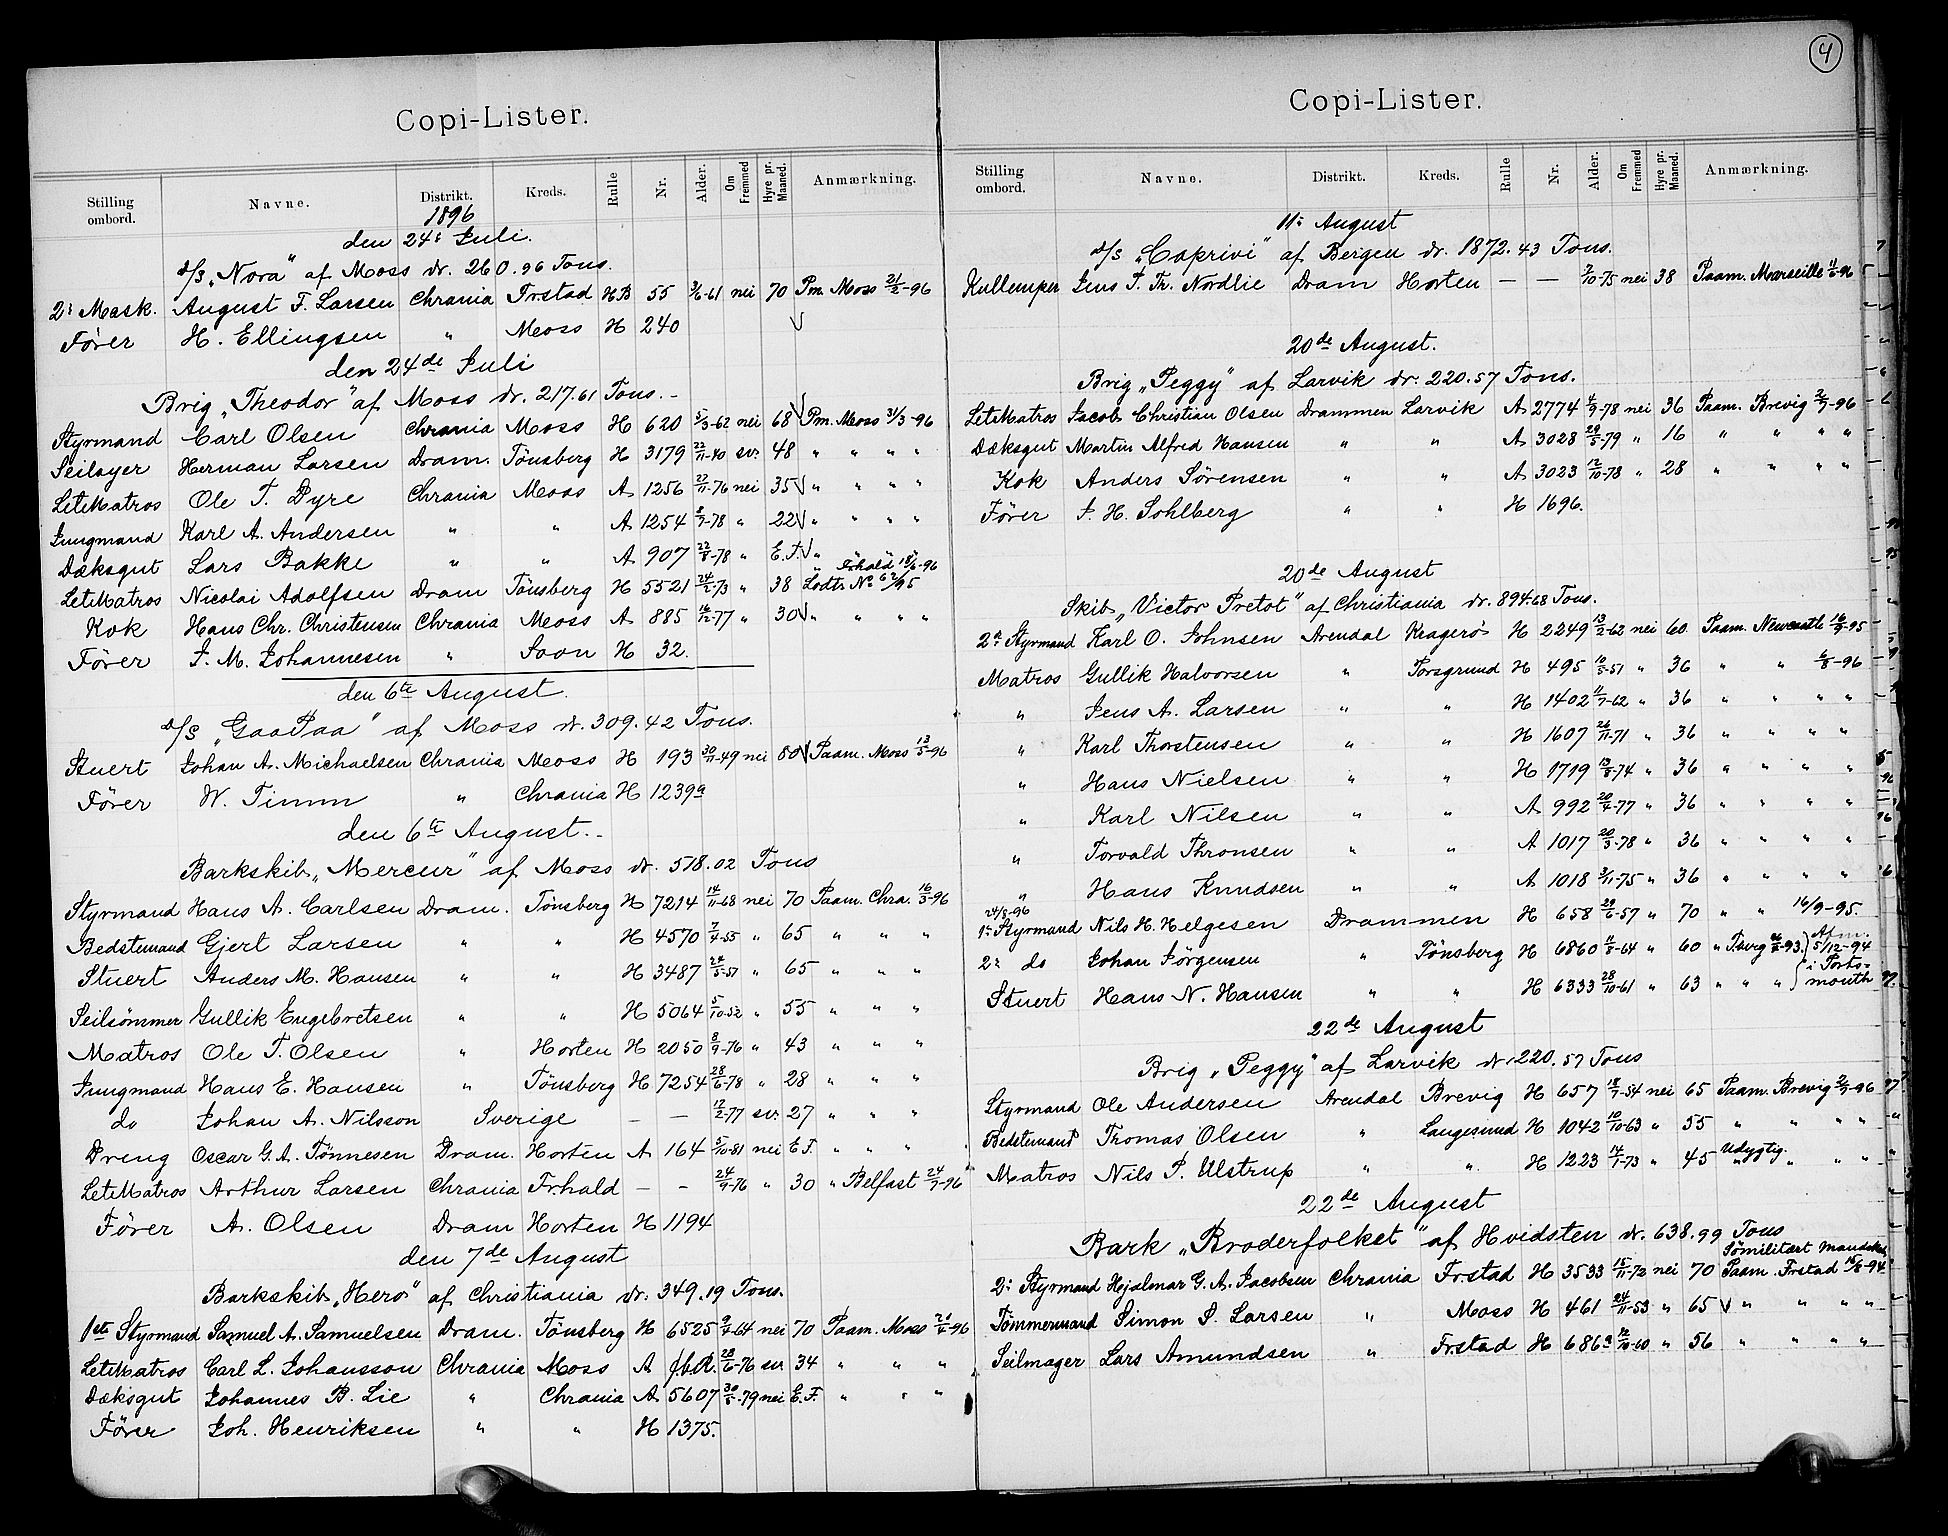 Copi-Lister.
Stilling ombord. Navne. Distrikt. Kreds. Rulle Nr. Alder. Om Fremmed Hyre pr. Maaned. Anmærkning.
1896
den 24: Juli.
D/S „Nora" af Moss dr. 260.96 Tons.
2: Mask. August F. Larsen Chrania Frstad H.B 55 3/6-61 nei 70 Pm. Moss 21/2-96
Fører H. Ellingsen " Moss H 240
den 24de Juli
Brig „Theodor" af Moss dr. 217.61 Tons.-
Styrmand Carl Olsen Chrania Moss H 620 5/3-62 nei 68 Pm. Moss 31/3-96
Seilayer Herman Larsen Dram. Tönsberg H 3179 22/11-40 sv. 48 " " " "
LetMatros Ole T. Dyre Chrania Moss A 1256 27/11-76 nei 35 " " " "
Jungmand Karl A. Andersen " " A 1254 8/7-78 " 22 " " " "
Dæksgut Lars Bakke " " A 907 22/8-78 " E.F. " " Frhald 18/6-96
LetMatros Nicolai Adolfsen Dram Tönsberg H 5521 24/2-73 " 38 Lodtr. No 62/95
Kok Hans Chr. Christensen Chrania Moss A 885 16/12-77 " 30 " " " "
Fører J. M. Johannesen " Soon H 32.
den 6te August.
D/S „GaaPaa" af Moss dr. 309.42 Tons.
Stuert Johan A. Michaelsen Chrania Moss H 193 30/11-49 nei 80 Paam. Moss 13/5-96
Fører W. Timm " Chrania H 1239a
den 6te August.-
Barkskib „Mercur" af Moss dr. 518.02 Tons
Styrmand Hans A. Carlsen Dram. Tönsberg H 7214 14/11-68 nei 70 Paam. Chra. 16/3-96
Bedstemand Gjert Larsen " " H 4570 7/4-55 " 65 " " "
Stuert Anders M. Hansen " " H 3487 24/5-57 " 65 " " "
Seilsömmer Gullik Engebretsen " " H 5064 5/10-52 " 55 " " "
Matros Ole T. Olsen " Horten H 2050 8/9-76 " 43 " " "
Jungmand Hans E. Hansen " Tönsberg H 7254 28/6-78 " 28 " " "
do Johan A. Nilsson Sverige - - 17/2-77 sv. 27 " " "
Dreng Oscar G. A. Tönnesen Dram. Horten A 164 5/10-81 nei E.F. " " "
LetMatros Arthur Larsen Chrania Fr.hald - - 24/9-76 " 30 " Belfast 24/7-96
Fører A. Olsen Dram Horten H 1194
den 7de August
Barkskib „Hero" af Christiania dr. 349.19 Tons.
1ste Styrmand Samuel A. Samuelsen Dram. Tönsberg H 6525 9/4-64 nei 70 Paam. Moss 21/4-96
LetMatros Carl L. Johansson Chrania Moss A f.b.R. 28/6-76 sv. 34 " " "
Dæksgut Johannes B. Lie " Chrania A 5607 30/5-79 nei E.F. " " "
Fører Joh. Henriksen " " H 1375.
4
Copi-Lister.
Stilling ombord. Navne. Distrikt. Kreds. Rulle Nr. Alder. Om Fremmed Hyre pr. Maaned. Anmærkning.
11: August
D/S „Caprivi" af Bergen dr. 1872.43 Tons.
Kullemper Jens P. Th. Nordlie Dram Horten - - 3/10-75 nei 38 Paam. Marseille 11/6-96
20de August.
Brig „Peggy" af Larvik dr. 220.57 Tons.
LetMatros Jacob Christian Olsen Drammen Larvik A 2774 4/9-78 nei 36 Paam. Brevig 2/7-96
Dæksgut Martin Alfred Hansen " " A 3028 29/5-79 " 16 " " " "
Kok Anders Sörensen " " A 3023 12/10-78 " 28 " " " "
Fører J. H. Sohlberg " " H 1696.
20de August
Skib „Victor Pretot" af Christiania dr. 894.68 Tons.
2a Styrmand Karl O. Johnsen Arendal Kragerö H 2249 13/2-62 nei 60 Paam. Newcastle 16/9-95
Matros Gullik Halvorsen " Porsgrund H 495 10/5-51 " 36 " " 6/8-96
" Jens A. Larsen " " H 1402 11/7-62 " 36 " " " "
" Karl Thorstensen " " H 1607 26/11-71 " 36 " " " "
" Hans Nielsen " " H 1719 13/8-74 " 36 " " " "
" Karl Nilsen " " A 992 20/4-77 " 36 " " " "
" Torvald Thronsen " " A 1017 20/3-78 " 36 " " " "
" Hans Knudsen " " A 1018 3/11-75 " 36 " " " "
24/8-96
1: Styrmand Nils H. Helgesen Drammen H 658 29/6-57 " 70 " " 16/9-95.
2: do Johan Jörgensen " Tönsberg H 6860 11/8-64 " 60 " Tbrg -93 Afm. 5/12-94
Stuert Hans N. Hansen " " H 6333 28/10-61 " 63 " " " i Portsmouth
22de August
Brig „Peggy" af Larvik dr. 220.57 Tons
Styrmand Ole Andersen Arendal Brevig H 657 18/7-54 nei 65 Paam. Brevig 2/7-96
Bedstemand Thomas Olsen " Langesund H 1042 10/10-63 " 55 " " " "
Matros Nils P. Ulstrup " " H 1223 14/1-73 " 45 Udygtig. " " " "
22de August
Bark „Broderfolket" af Hvidsten dr. 638.99 Tons
Sömilitært Mandskab
2: Styrmand Hejalmar G. A. Jacobsen Chrania Frstad H 3533 15/11-72 nei 70 Paam. Frstad 15/8-94
Tömmermand Simon S. Larsen " Moss H 461 24/11-53 " 65 " " " "
Seilmager Lars Amundsen " Frstad H 686a 12/10-60 " 56 " " " "